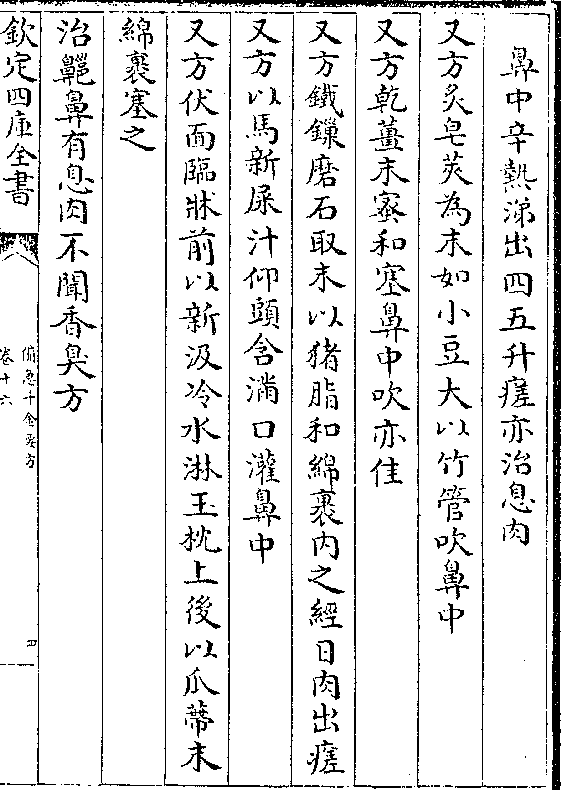 鼻中辛熱涕出四五升瘥亦治息肉
又方炙皂莢為末如小豆大以竹管吹鼻中
又方乾薑末蜜和塞鼻中吹亦佳
又方鐵鏁磨石取末以猪脂和綿裹内之經日肉出瘥
又方以馬新屎汁仰頭含滿口灌鼻中
又方伏面臨牀前以新汲冷水淋玉枕上後以爪蔕末
綿裹塞之
治鼽鼻有息肉不聞香臭方
欽定四庫全書
備急千金要方
卷十六
四